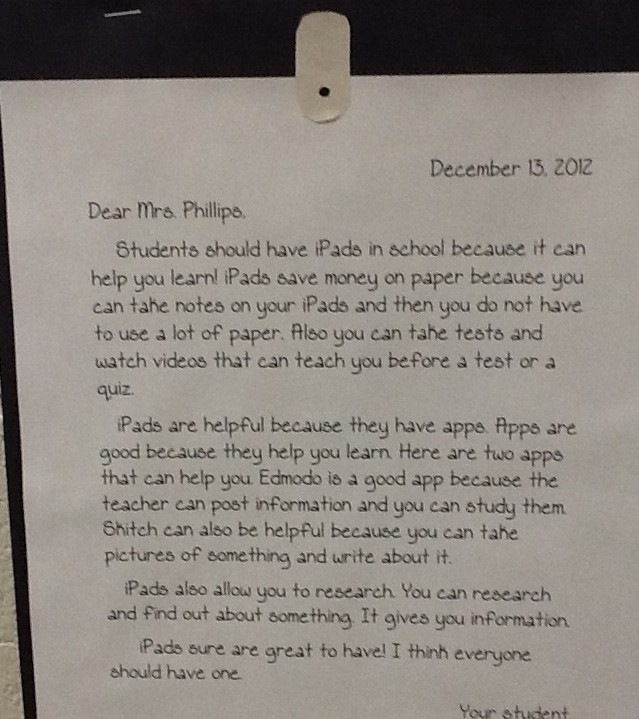 December 13, 2012
Dear Mrs. Phillips,
Students should have iPads in school because it can
help you learn! iPads save money on paper because you
can take notes on your iPads and then you do not have
to use a lot of paper. Also you can take tests and
watch videos that can teach you before a test or a
quiz.
iPads are helpful because they have apps. Apps are
good because they help you learn. Here are two apps
that can help you. Edmodo is a good app because the
teacher can post information and you can study them.
Skitch can also be helpful because you can take
pictures of something and write about it.
iPads also allow you to research. You can research
and find out about something. It gives you information.
iPads sure are great to have! I think everyone
should have one.
Your student,